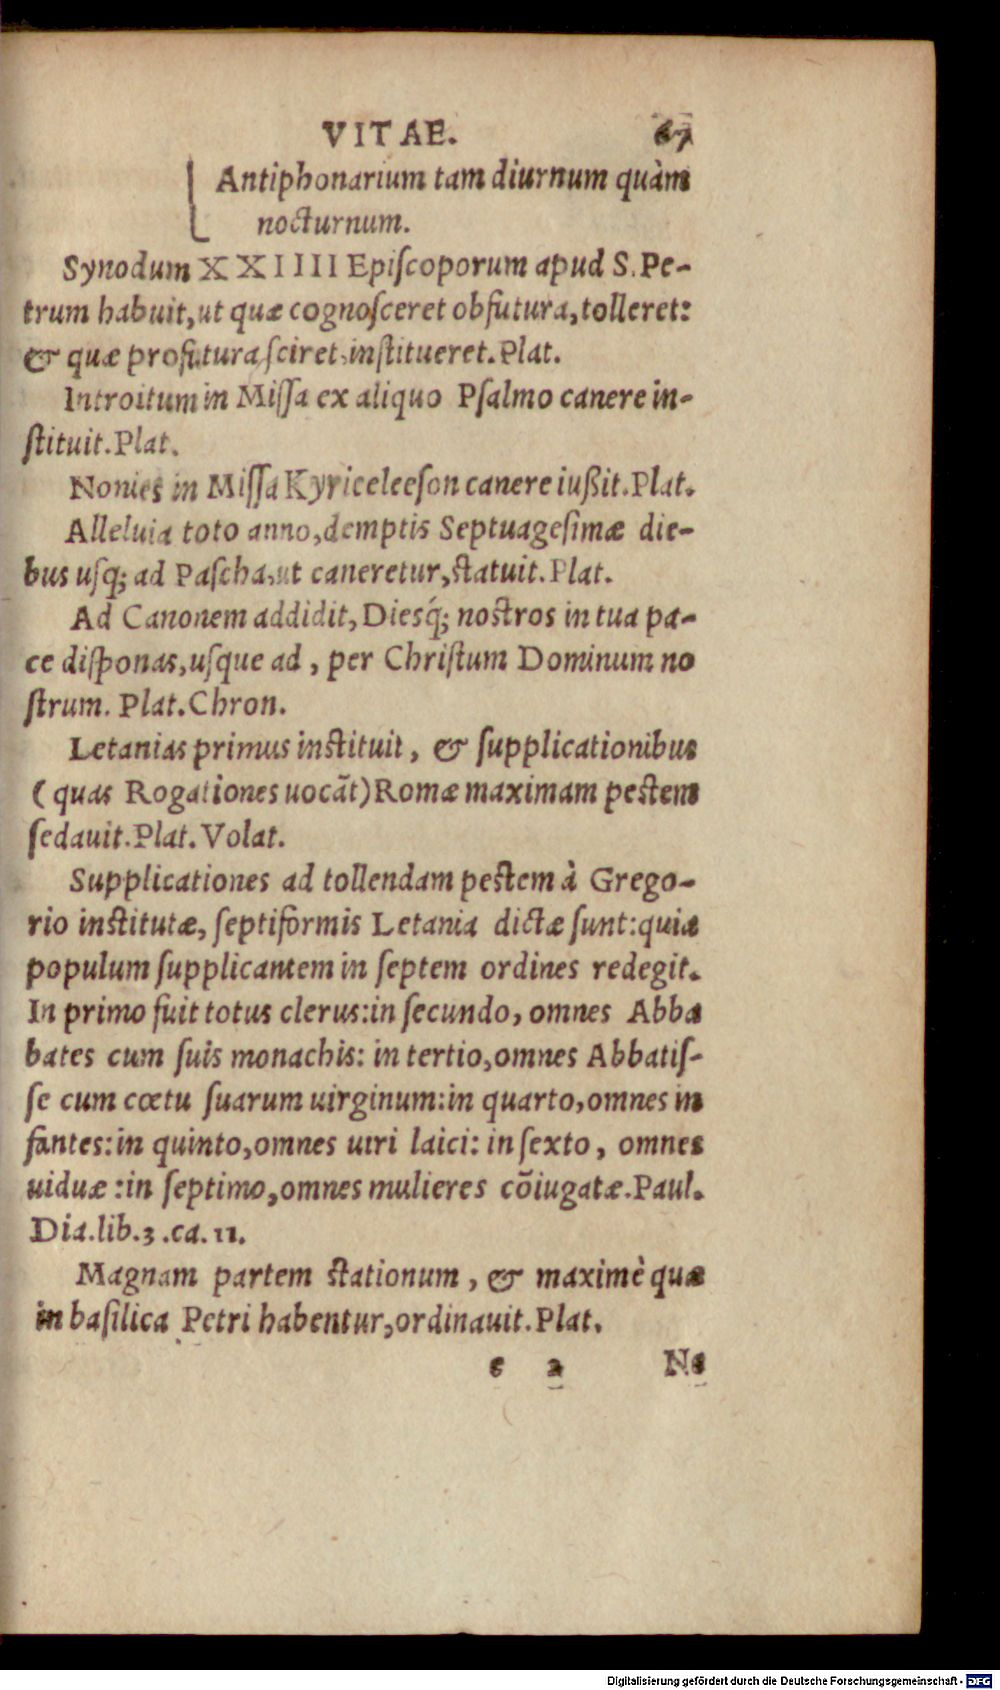 VITAE. 67
Antiphonarium tam diurnum quàm
nocturnum.
Synodum XXIIII Episcoporum apud S. Pe-
trum habuit, ut quæ cognosceret obfutura, tolleret:
& quæ profutura sciret, institueret. Plat.
Introitum in Missa ex aliquo Psalmo canere in-
stituit. Plat.
Nonies in Missa Kyrieeleeson canere iußit. Plat.
Alleluia toto anno, demptis Septuagesimæ die-
bus usq; ad Pascha, ut caneretur, statuit. Plat.
Ad Canonem addidit, Diesq́; nostros in tua pa-
ce disponas, usque ad, per Christum Dominum no
strum. Plat. Chron.
Letanias primus instituit, & supplicationibus
(quas Rogationes uocãt) Romæ maximam pestem
sedauit. Plat. Volat.
Supplicationes ad tollendam pestem à Grego-
rio institutæ, septiformis Letania dictæ sunt: quia
populum supplicantem in septem ordines redegit.
In primo fuit totus clerus: in secundo, omnes Abba
bates cum suis monachis: in tertio, omnes Abbatis-
se cum cœtu suarum uirginum: in quarto, omnes in
fantes: in quinto, omnes uiri laici: in sexto, omnes
uiduæ: in septimo, omnes mulieres cõiugatæ. Paul.
Dia. lib. 3. ca. 11.
Magnam partem stationum, & maximè quæ
in basilica Petri habentur, ordinauit. Plat.
e 2 Ne
Digitalisierung gefördert durch die Deutsche Forschungsgemeinschaft - DFG